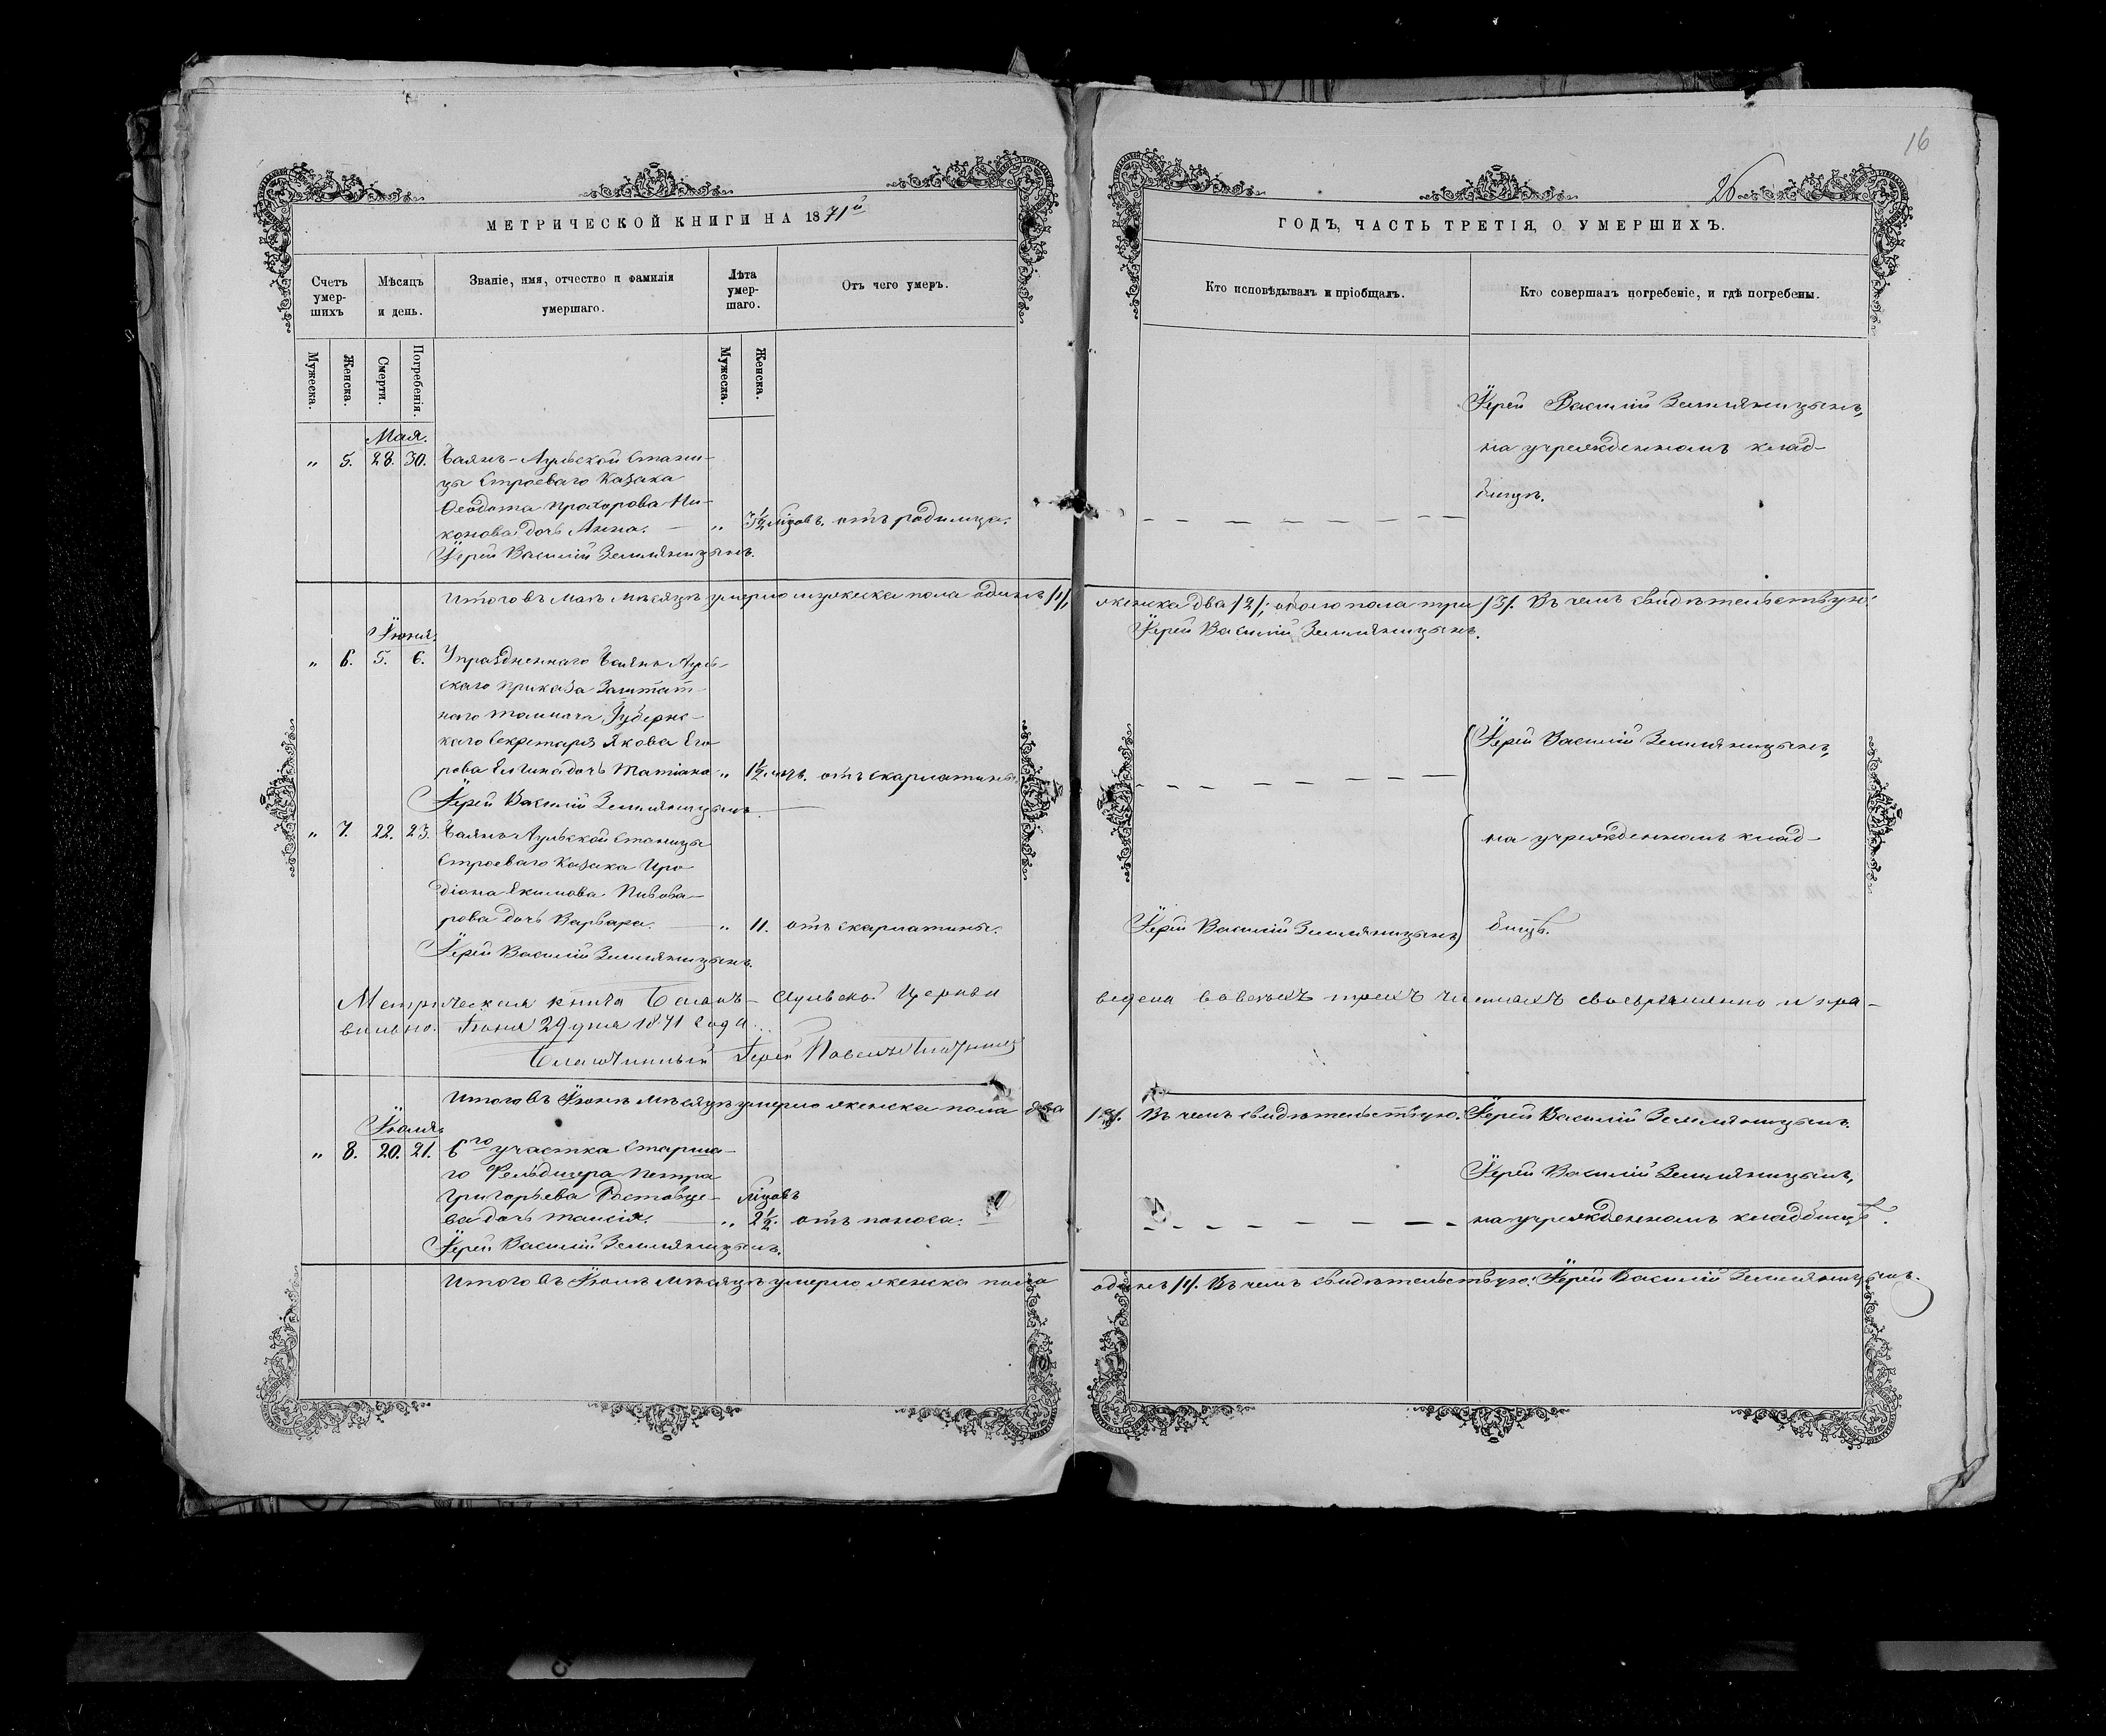 16
26
МЕТРИЧЕСКОЙ КНИГИ НА 1871й
ГОДЪ, ЧАСТЬ ТРЕТІЯ, О УМЕРШИХЪ.
Счетъ умер-
шихъ
Мѣсяцъ
и день.
Званіе, имя, отчество и фамилія
умершаго.
Лѣта
умер-
шаго.
Отъ чего умеръ.
Кто исповѣдывалъ и пріобщалъ.
Кто совершалъ погребеніе, и гдѣ погребены.
Мужеска.
Женска.
Смерти.
Погребенія.
Мужеска.
Женска.
Мая.
„ 5. 28. 30. Баянъ-Аульской Стани-
цы Строеваго Казака
Ѳеодота Прохорова Ни-
конова дочь Анна. — „ 3½ мѣсцовъ. отъ родимца.
Іерей Василій Земляницынъ.
Іерей Василій Земляницынъ,
на учрежденномъ клад-
бищѣ.
Итого въ Маѣ мѣсяцѣ умерло мужеска пола одинъ /1/,
женска два /2/; обоего пола три /3/. Въ чемъ свидѣтельствую:
Іерей Василій Земляницынъ.
Іюня.
„ 6. 5. 6. Упраздненнаго Баянъ-Ауль-
скаго приказа Заштат-
наго толмача, Губернс-
каго Секретаря Якова Его-
рова дочь Татіана „ 1½ отъ скарлатины.
Іерей Василій Земляницынъ.
Іерей Василій Земляницынъ,
„ 7. 22. 23. Баянъ-Аульской Станицы
Строеваго Казака Иро-
діона Якимова Пивова-
рова дочь Варвара. — „ 11. отъ скарлатины.
Іерей Василій Земляницынъ.
Іерей Василій Земляницынъ
на учрежденномъ клад-
бищѣ.
Метрическая книга Баянъ-Аульской Церкви
ведена во всехъ трехъ частяхъ своевременно и пра-
вильно. Іюня 29 дня 1871 года.
Благочинный Іерей Павелъ
Итого въ Іюнѣ мѣсяцѣ умерло женска пола два
/2/. Въ чемъ свидѣтельствую: Іерей Василій Земляницынъ.
Іюля.
„ 8. 20. 21. 6го участка Старша-
го Фельдшера Петра
Григорьева Ростовце-
ва дочь Таисія. — „ мѣсцовъ 2½. отъ поноса.
Іерей Василій Земляницынъ.
Іерей Василій Земляницынъ,
на учрежденномъ кладбищѣ.
Итого въ Іюлѣ мѣсяцѣ умерло женска пола
одинъ /1/. Въ чемъ свидѣтельствую: Іерей Василій Земляницынъ.